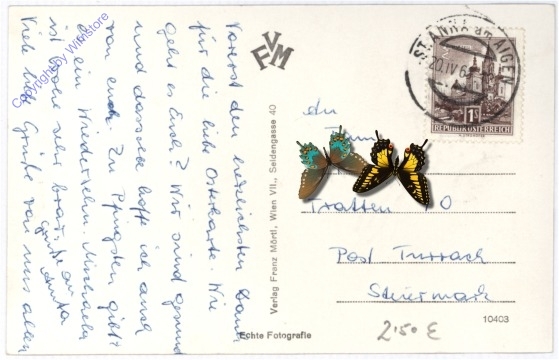 Vorerst den herzlichsten Dank
für die liebe Osterkarte. Wie
geht es Euch? Wir sind gesund
und dasselbe hoffe ich auch
von euch. Zu Pfingsten gibt
es ein Wiedersehn. Michaela
ist schon sehr brav.
Viele liebe Grüße von uns allen
Copyright by WinStore
FVM
Verlag Franz Mörtl, Wien VII., Seidengasse 40
Echte Fotografie
ST. ANNA am AIGEN
20.IV.6
1 S
REPUBLIK ÖSTERREICH
An
Fam.
Tratten 10
Post Turrach
Steiermark
10403
2.50 €